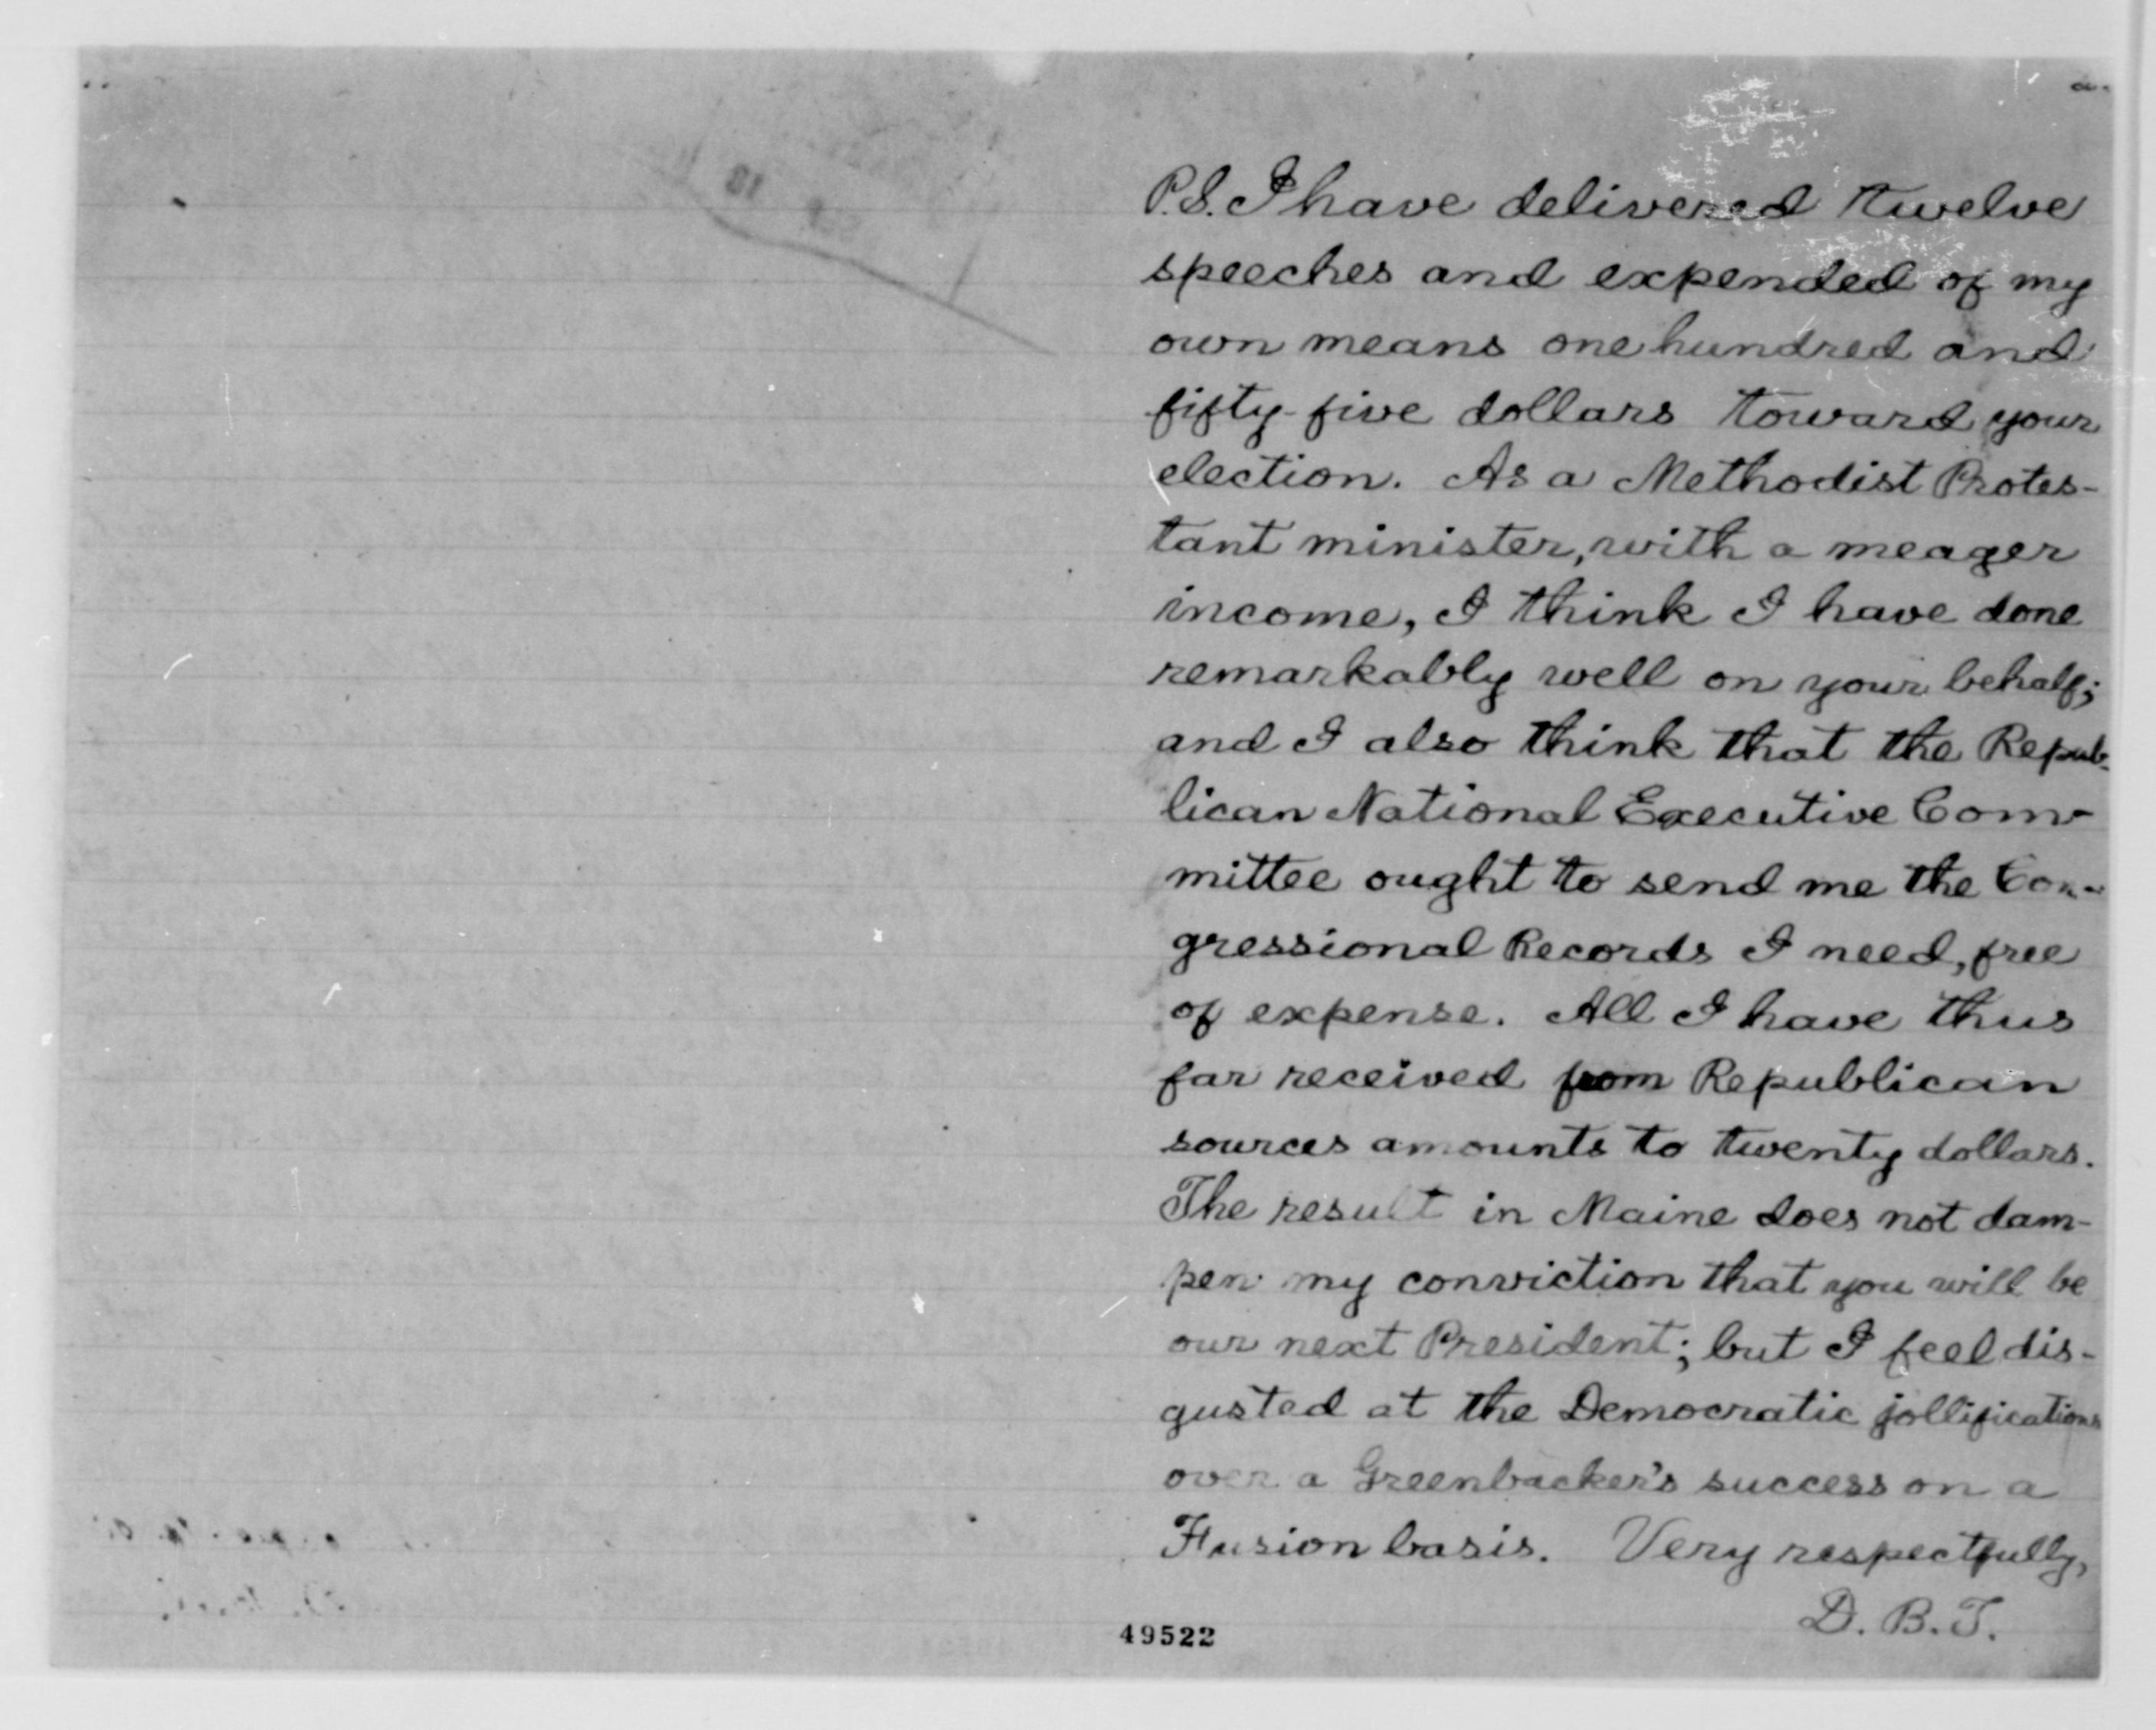 P.S. I have delivered twelve
speeches and expended of my
own means one hundred and
fifty-five dollars toward your
election. As a Methodist Protes-
tant minister, with a meager
income, I think I have done
remarkably well on your behalf;
and I also think that the Repub-
lican National Executive Com-
mittee ought to send me the Con-
gressional Records I need, free
of expense. All I have thus
far received from Republican
sources amounts to twenty dollars.
The result in Maine does not dam-
pen my conviction that you will be
our next President; but I feel dis-
gusted at the Democratic jollifications
over a Greenbacker's success on a
Fusion basis. Very respectfully,
D. B. T.
49522